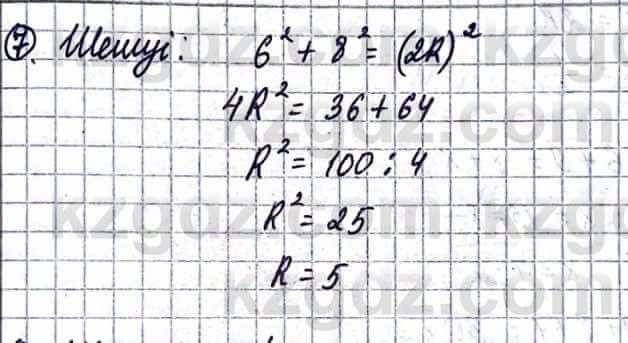 7. Шешуі: 6² + 8² = (2R)²
4R² = 36 + 64
R² = 100 : 4
R² = 25
R = 5
kzgdz.com